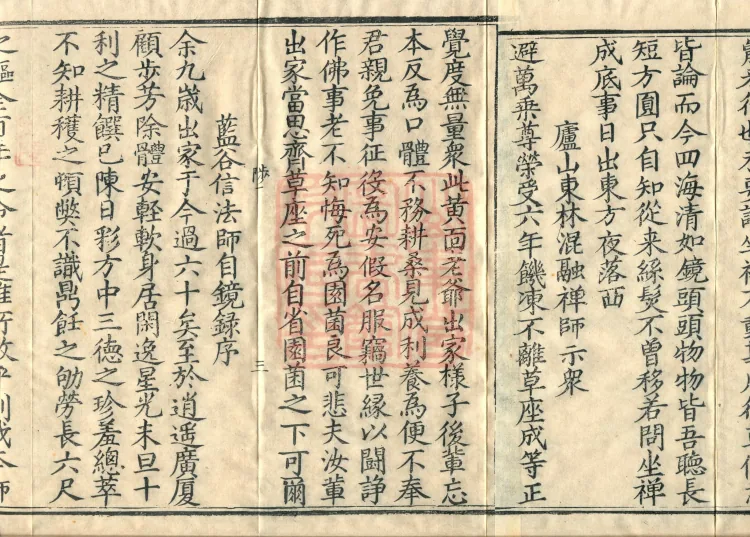 皆論而今四海清如鏡頭頭物物皆吾聽長
短方圓只自知從来絲髮不曾移若問坐禅
成底事日出東方夜落西
廬山東林混融禅師示衆
避萬乗尊榮受六年饑凍不離草座成等正
覺度無量衆此黄面老爺出家様子後輩忘
本反為口體不務耕桑見成利養為便不奉
君親免事征役為安假名服竊世縁以闘諍
作佛事老不知悔死為園菌良可悲夫汝輩
出家當思齊草座之前自省園菌之下可爾
陟一
三
藍谷信法師自鏡録序
余九嵗出家于今過六十矣至於逍遥廣厦
顧步芳除體安輕軟身居閑逸星光未旦十
利之精饌已陳日彩方中三德之珍羞總萃
不知耕穫之頓弊不識鼎飪之劬勞長六尺